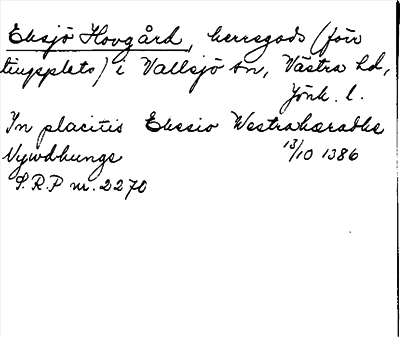 Eksjö Hovgård, herrgods (förr
tingsplats) i Vallsjö sn, Västra hd,
Jönk. l.
In placitis Ekesio Westrahæradhe
13/10 1386
S.R.P nr. 2270